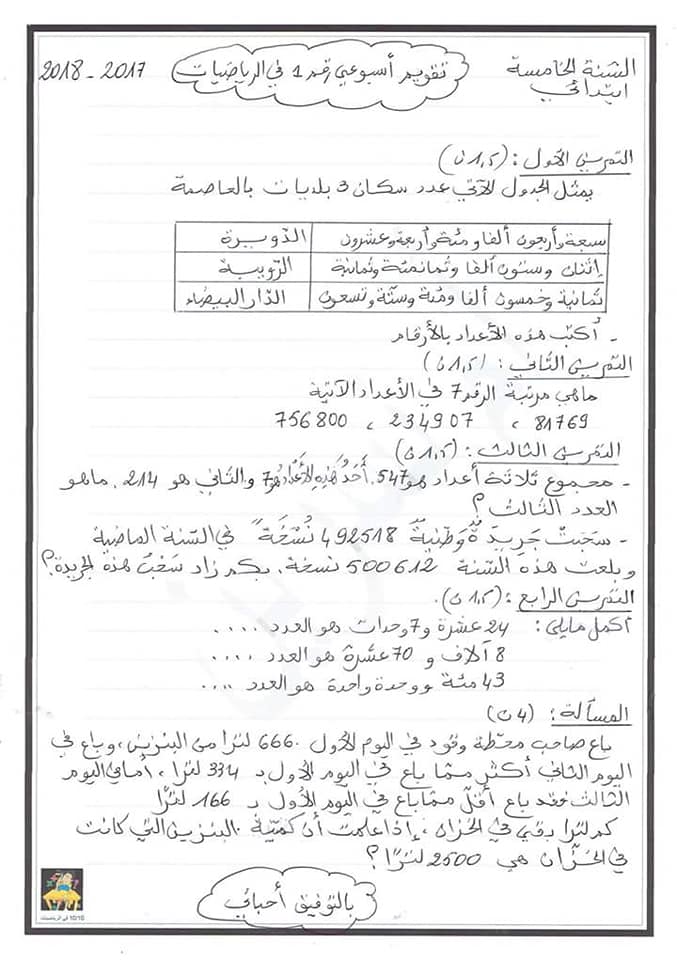 السنة الخامسة ابتدائي
تقويم أسبوعي رقم 1 في الرياضيات
2017 - 2018
التمرين الأول : (1,5ن)
يمثل الجدول الآتي عدد سكان 3 بلديات بالعاصمة
سبعة وأربعون ألفا ومئة وأربعة وعشرون الدويرة
إثنان وستون ألفا وثمانمئة وثمانية الرويبة
ثمانية وخمسون ألفا ومئة وستة وتسعون الدار البيضاء
- أكتب هذه الأعداد بالأرقام
التمرين الثاني : (1,5ن)
ماهي مرتبة الرقم 7 في الأعداد الآتية
81769 ، 234907 ، 756800
التمرين الثالث : (1,5ن)
- مجموع ثلاثة أعداد هو 547. أَحَدُ هَذِهِ الأَعْدَادِ هُوَ 7 والثاني هو 214. ماهو
العدد الثالث ؟
- سحبت جريدة وطنية 492518 نسخة في السنة الماضية
وبلغت هذه السنة 500612 نسخة. بكم زاد سحب هذه الجريدة؟
التمرين الرابع : (1,5ن).
أكمل مايلي : 24 عشرة و 7 وحدات هو العدد ....
8 آلاف و 70 عشرة هو العدد ....
43 مئة ووحدة واحدة هو العدد ....
المسألة : (4ن)
باع صاحب محطة وقود في اليوم الأول 666 لترا من البنزين، وباع في
اليوم الثاني أكثر مما باع في اليوم الأول بـ 334 لترا ، أما في اليوم
الثالث فقد باع أقل مما باع في اليوم الأول بـ 166 لترًا
كم لترا بقي في الخزان ، إذا علمت أن كمية البنزين التي كانت
في الخزان هي 2500 لترًا ؟
بالتوفيق أحبائي
10/10 في الرياضيات